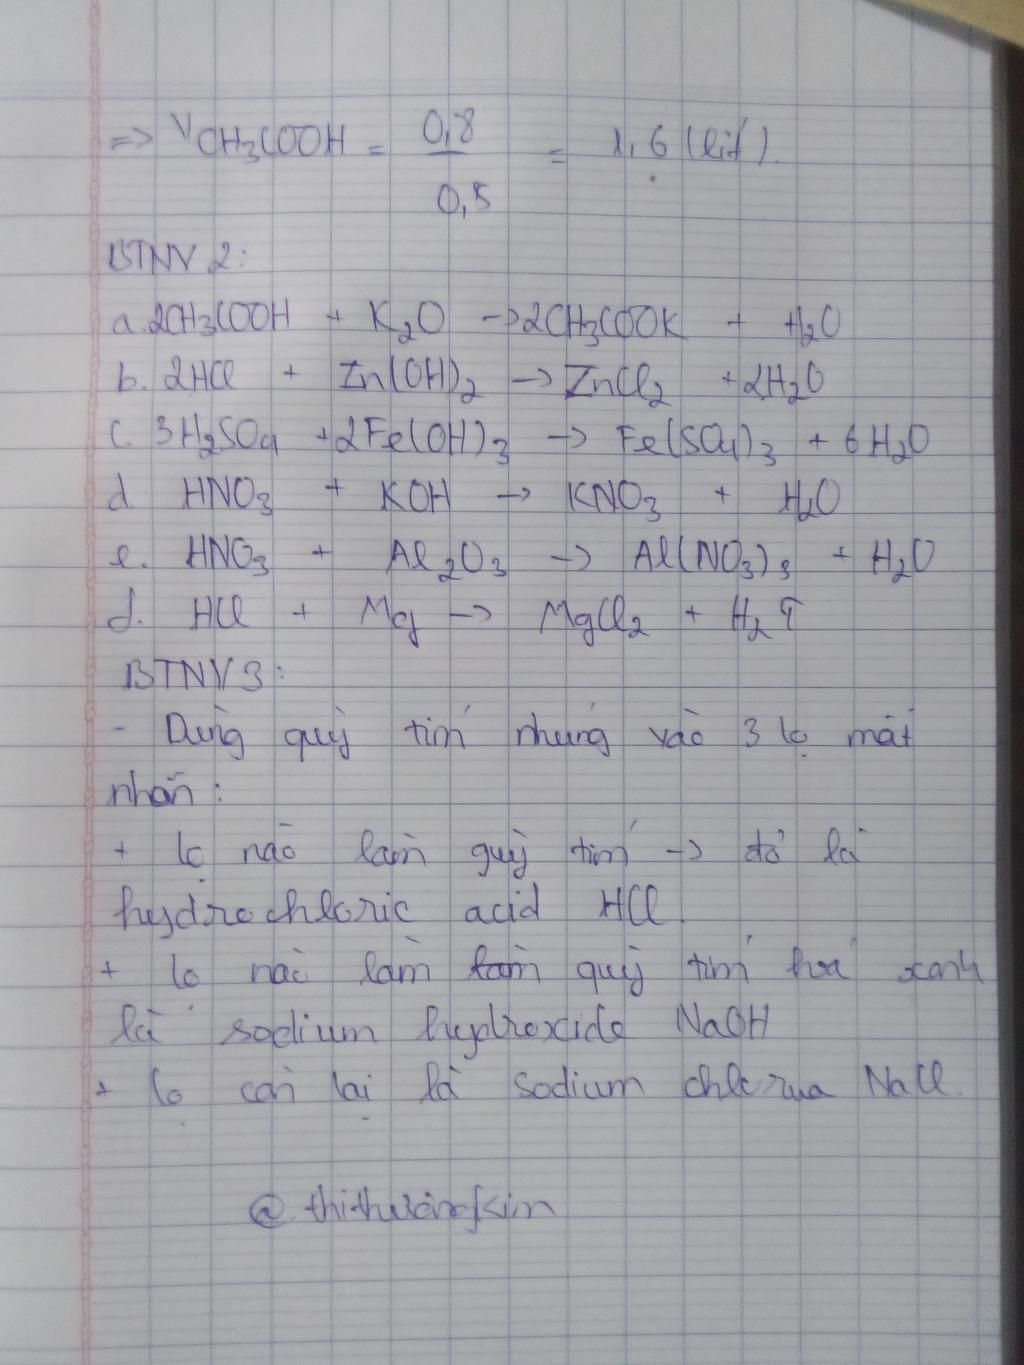 => VCH3COOH = 0,8 / 0,5 = 1,6 (lít).
BTNV 2:
a. 2CH3COOH + K2O -> 2CH3COOK + H2O
b. 2HCl + Zn(OH)2 -> ZnCl2 + 2H2O
c. 3H2SO4 + 2Fe(OH)3 -> Fe(SO4)3 + 6H2O
d. HNO3 + KOH -> KNO3 + H2O
e. HNO3 + Al2O3 -> Al(NO3)3 + H2O
d. HCl + Mg -> MgCl2 + H2↑
BTNV3:
- Dùng quỳ tím nhúng vào 3 lọ mất
nhãn:
+ lọ nào làm quỳ tím -> đỏ là
hydrochloric acid HCl.
+ lọ nào làm làm quỳ tím hoá xanh
là sodium hydroxide NaOH
+ lọ còn lại là sodium chlorua NaCl.